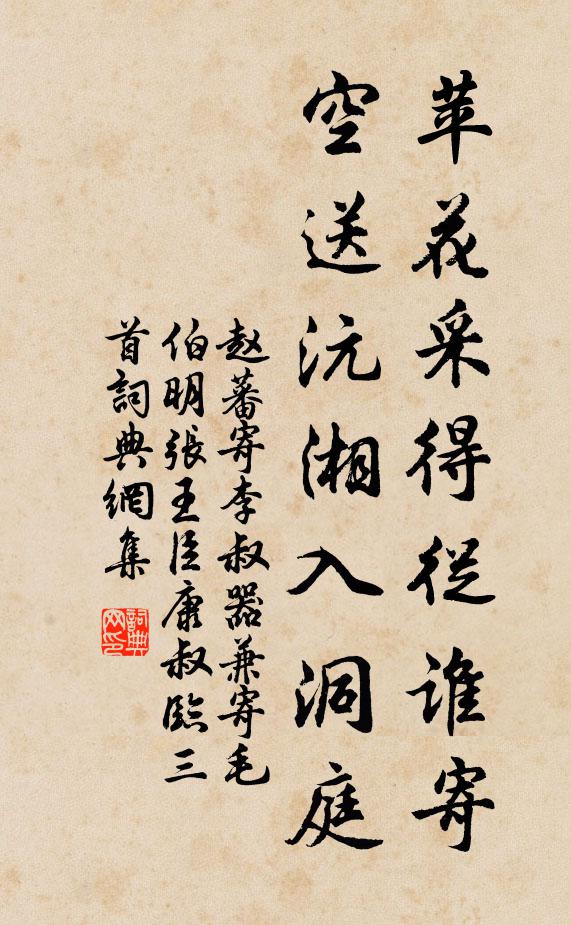 苹花采得從谁寄
空送沅湘入洞庭
赵蕃寄李叔器兼寄毛
伯明張王臣康叔臨三
首詞典網集
詞典
网印